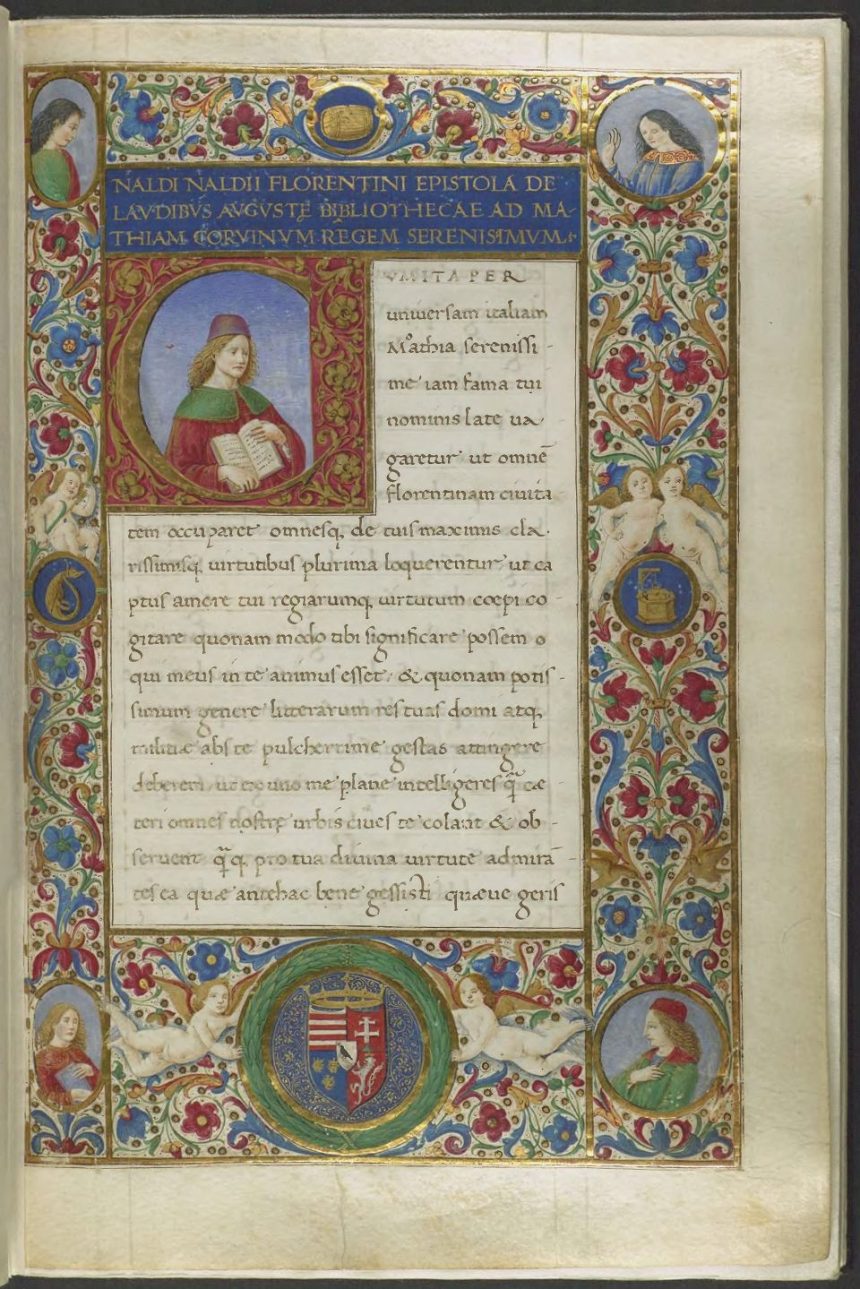 NALDI NALDII FLORENTINI EPISTOLA DE
LAVDIBVS AVGVSTĘ BIBLIOTHECAE AD MA-
THIAM CORVINVM REGEM SERENISIMVM.
CVM ITA PER
universam italiam
Mathia serenissi-
me iam fama tui
nominis late va
garetur ut omnē
florentinam civita
tem occuparet omnesq, de tuis maximis cla.
rissimisq, virtutibus plurima loquerentur ut ca
ptus amore tui regiarumq, virtutum coepi co
gitare quonam modo tibi significare possem o
qui meus in te animus esset, & quonam potis-
simum genere litterarum res tuas domi atq,
militiæ abs te pulcherrime gestas attingere
deberem, ut ex uno me plane intelligeres q̄ cæ-
teri omnes nostrę urbis cives te colant & ob-
servent q̄q, pro tua divina virtute admirā-
tes ea quæ antehac bene gessisti quæve geris